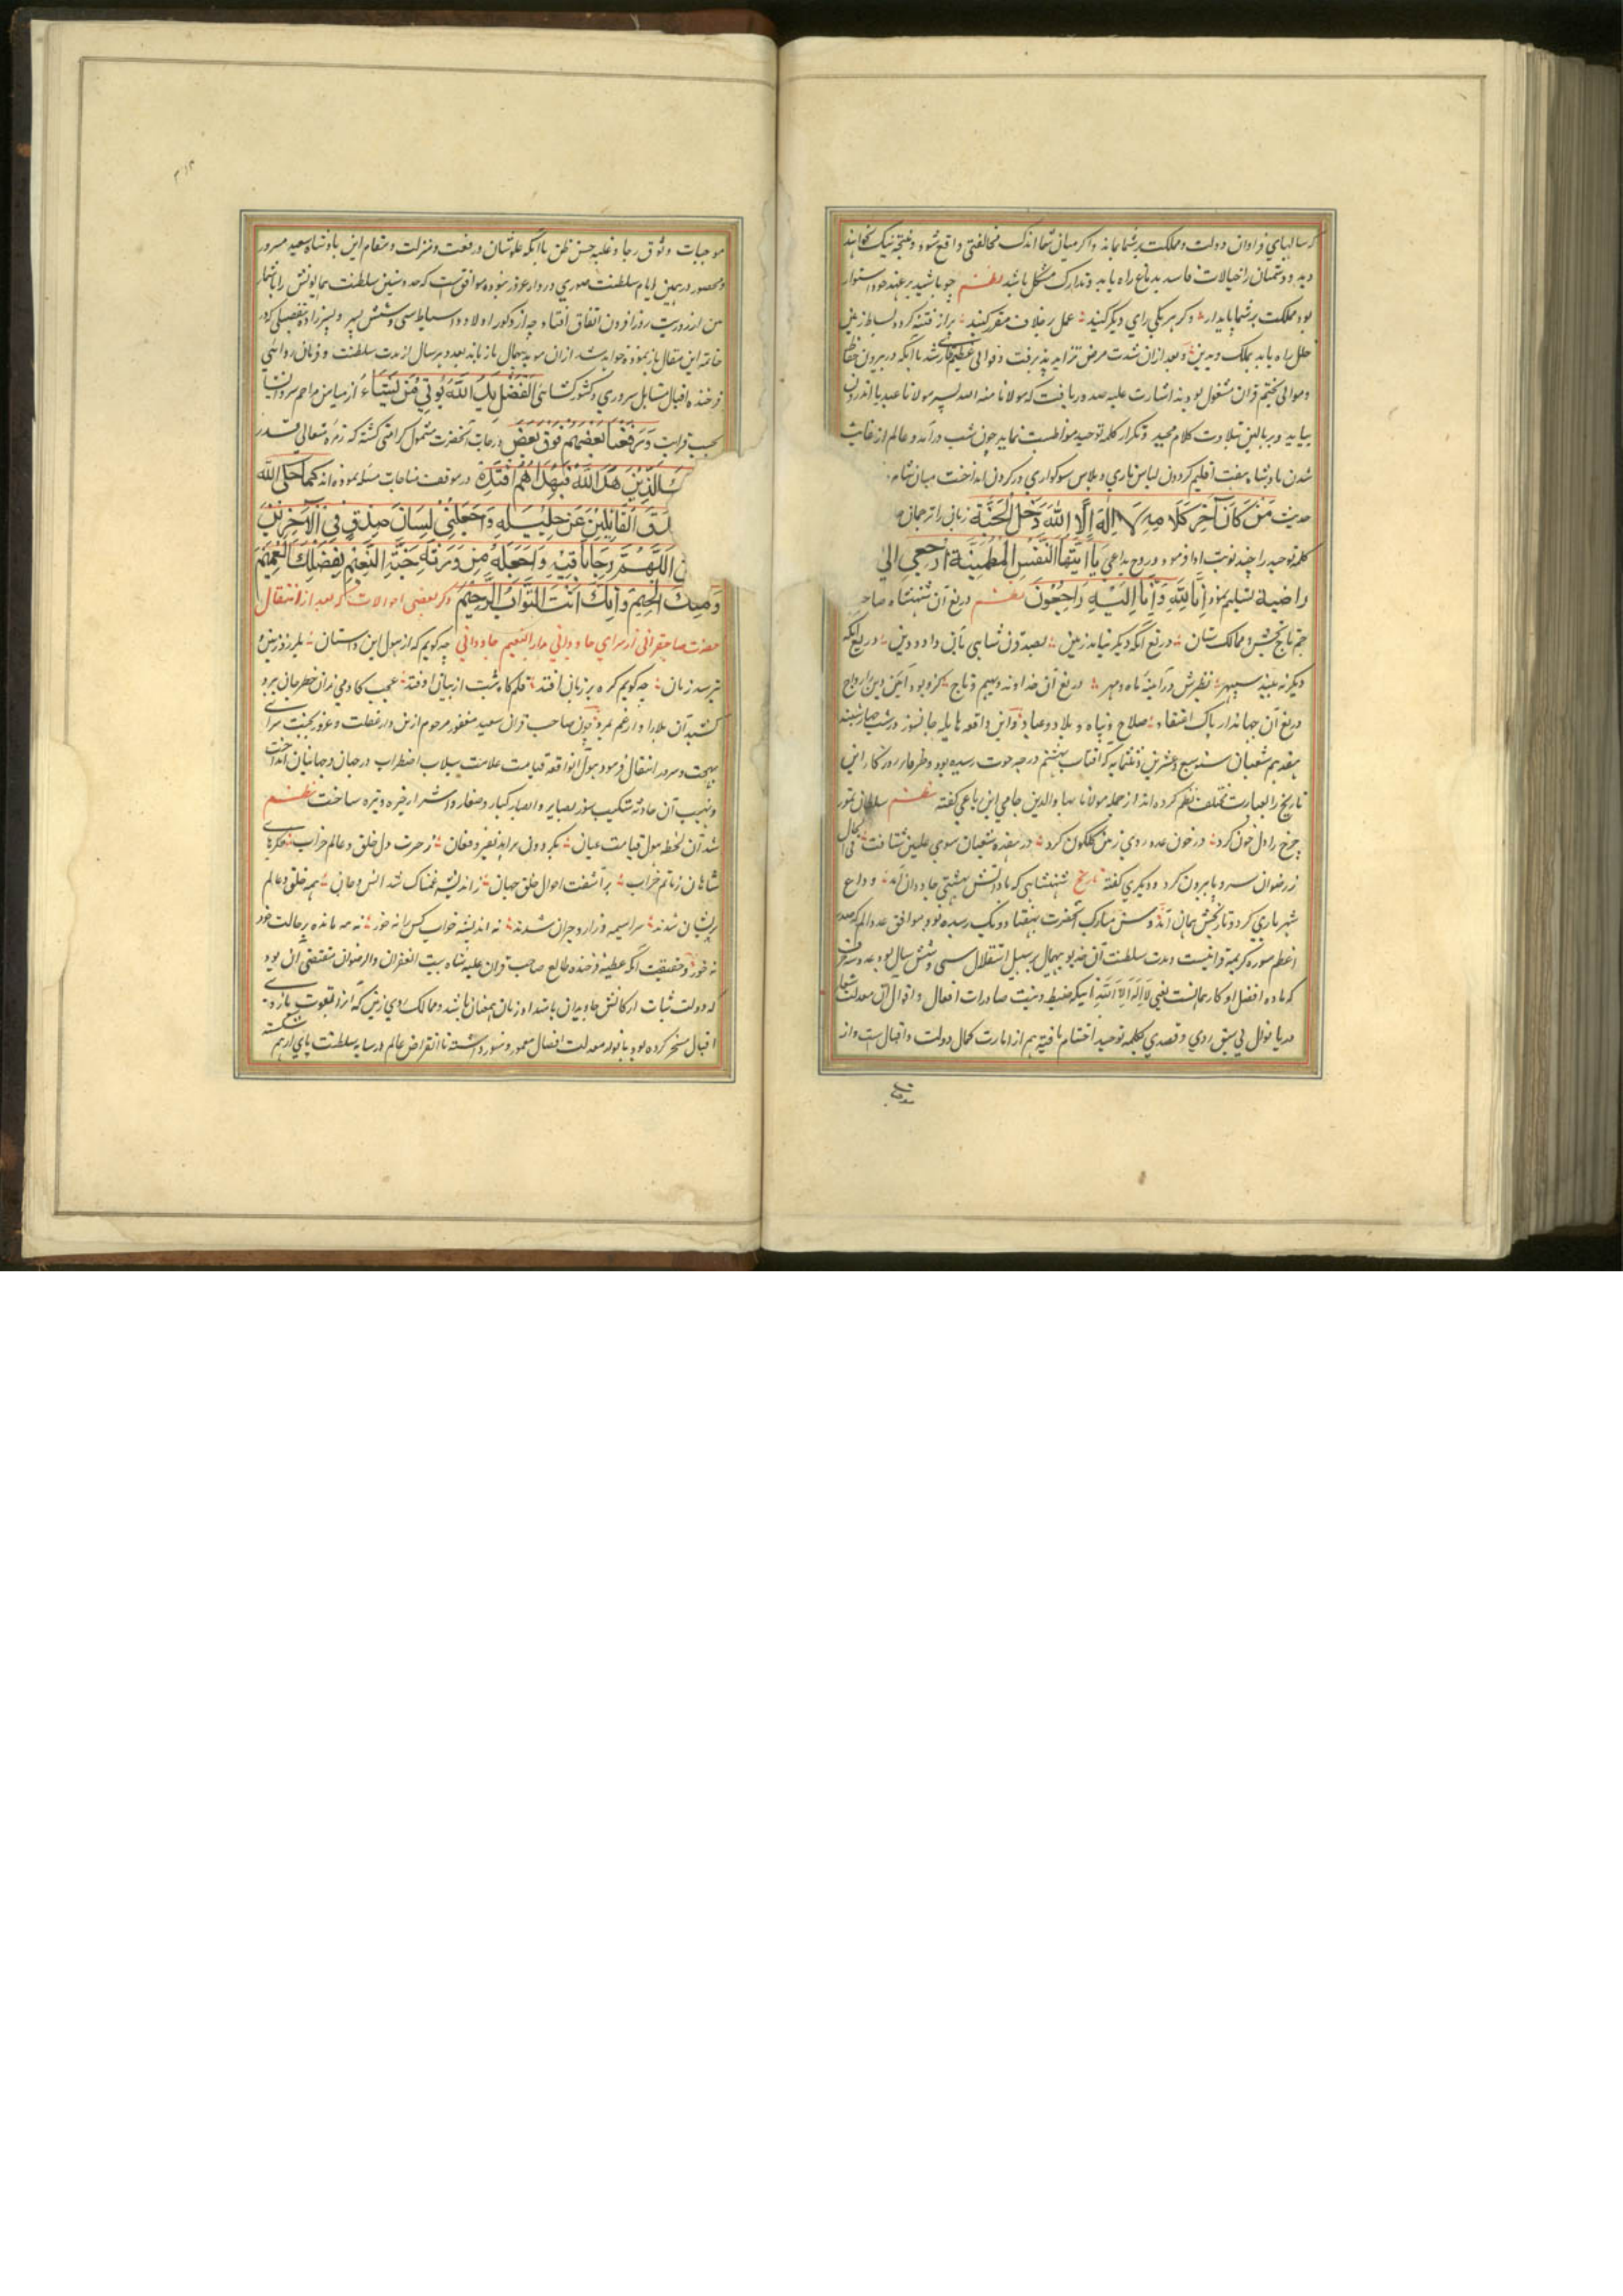 که سالهای فراوان دولت و مملکت بر شما بماند و اگر میان شما اندک مخالفتی واقع شود و نتیجه نیک نخواهند
دید و دشمنان را خیالات فاسد بدماغ راه یابد و تدارک مشکل باشد نظم چو باشید بر عهد خود استوار
بود مملکت بر شما پایدار وگر هر یکی رای دیگر کنید عمل بر خلاف مقرر کنید بر از فتنه گردد بساط زمین
خلل راه یابد بملک و بدین و بعد از ان شدت مرض تزاید پذیرفت و با آنکه در بیرون حفاظ
و موالی بختم قران مشغول بودند اشارت علیه صدور یافت که مولانا هبة الله پسر مولانا عبید با اندرون
بیاید و بر بالین بتلاوت کلام مجید و تکرار کلمه توحید مواظبت نماید چون شب درآمد و عالم از غایب
شدن پادشاه هفت اقلیم گردون لباس و پلاس سوگواری در گردون انداخت میان شام
حدیث مَنْ كَانَ آخِرُ كَلَامِهِ لَا إِلَهَ إِلَّا اللَّهُ دَخَلَ الْجَنَّةَ زبان را ترجمان
کلمه توحید را چند نوبت ادا فرمود و روح بداعی يَا أَيَّتُهَا النَّفْسُ الْمُطْمَئِنَّةُ ارْجِعِي إِلَى
رَاضِيَةً تسلیم نمود إِنَّا لِلَّهِ وَإِنَّا إِلَيْهِ رَاجِعُونَ نظم دریغ آن شهنشاه صاحب
جم تاج بخش و ممالک ستان دریغ آنکه دیگر نیابد زمین بصد قرن شاهی بآن داد و دین دریغ آنکه
دیگر نبیند سپهر نظیرش در آینه ماه و مهر دریغ آن خداوند دیهیم و تاج کزو بود آئین دین را رواج
دریغ آن جهاندار پاک اعتقاد صلاح و پناه بلاد و عباد و این واقعه هایله جانسوز در شب چهارشنبه
هفدهم شعبان سنه سبع و ثمانمایه که آفتاب بهشتم درجه حوت رسیده بود
تاریخ را بعبارت مختلف نظم کرده اند از جمله مولانا بهاء الدین جامی این رباعی گفته نظم سلطان تمور
چرخ را دل خون کرد در خون عدو روی زمین گلگون کرد در هفده شعبان سوی علیین شتافت فی الحال
ز رضوان سر و پا بیرون کرد و دیگری گفته تاریخ شهنشاهی که مادانش بهشتی جاودان آمد وداع
شهریاری کرد و تاریخش همان آمد و سن مبارک آنحضرت بهفتاد و یک رسیده بود موافق عدد الم که صدر
اعظم سوره کریمه قرآنیست و مدت سلطنت آن خدیو بیهمال بر سبیل استقلال سی و شش سال بود
که ماده افضل اذکار هم آنست یعنی لَا إِلَهَ إِلَّا اللَّهُ صادرات افعال و اقوال آن معدلت شعار
دریا نوال بکلمه توحید اختتام یافته هم از امارت کمال دولت و اقبال است و از
موجبات
موجبات وثوق رجا و غلبه حسن ظن باآنکه علو شان و رفعت و منزلت و مقام این پادشاه سعید مسرور
ایام سلطنت صوری در دار غرور نموده موافقست که عدد سنین سلطنت همایونش را
من از ذریت روز افزون اتفاق افتاد چه از ذکور اولاد و اسباط سی و شش پسر و پسرزاده تفصیلی که در
خاتمه این مقال باز نموده خواهد شد ازان موبد بیهمال باز ماند بعدد هر سال از مدت سلطنت و فرمان روائی
فرخنده اقبال مقابل سروری و کشورگشائی الْفَضْلُ بِيَدِ اللَّهِ يُؤْتِيهِ مَنْ يَشَاءُ از میامن مراحم
وَرَفَعْنَا بَعْضَهُمْ فَوْقَ بَعْضٍ درجات آنحضرت مشمول کرامتی گشته که زمره متعالی قدر
الَّذِينَ هَدَى اللَّهُ فَبِهُدَاهُمُ اقْتَدِهْ در موقف مناجات مسئله نموده اند كَمَا حَكَى اللَّهُ
الْقَائِلِينَ عَنْ خَلِيلِهِ وَاجْعَلْ لِي لِسَانَ صِدْقٍ فِي الْآخِرِينَ
اللَّهُمَّ وَاجْعَلْهُ مِنْ وَرَثَةِ جَنَّةِ النَّعِيمِ بِفَضْلِكَ الْعَمِيمِ
إِنَّكَ أَنْتَ التَّوَّابُ الرَّحِيمُ ذکر بعضی احوالات که بعد از انتقال
حضرت صاحبقرانی از سرای جاودانی بدار النعیم جاودانی چه گویم که از هول این داستان بلرزد زمین و
بترسد زمان چه گویم گره بر زبان افتد عجب
چون صاحب قران سعید مغفور مرحوم ازین دار غفلت و غرور بجنت سرای
بهجت و سرور انتقال فرمود هول آنواقعه قیامت علامت سیلاب اضطراب در جهان و جهانیان انداخت
و نهیب آن حادثه شکیب سوز بصایر و ابصار کبار و صغار و اشرار خیره و تیره ساخت نظم
شد آن لحظه هول قیامت عیان بگردون برآمد نفیر و فغان ز حیرت دل خلق و عالم خراب جگرهای
شاهان ز ماتم خراب برآشفت احوال خلق جهان ز اندیشه غمناک شد انس و جان همه خلق و عالم
پریشان شدند سراسیمه و زار و حیران شدند نه اندیشه خواب کس را نه خور نه مه مانده بر حالت خود
نه خور و حقیقت آنکه عطیه فرخنده طالع صاحب قران علیه شآبیب الغفران والرضوان مقتضی آن بود
که دولت ثبات ارکانش جاویدان باشد و ممالک روی زمین که آنرا بقوت بازوی
اقبال مسخر کرده بود معدلت افضال معمور و تا انقراض عالم در سایه سلطنت